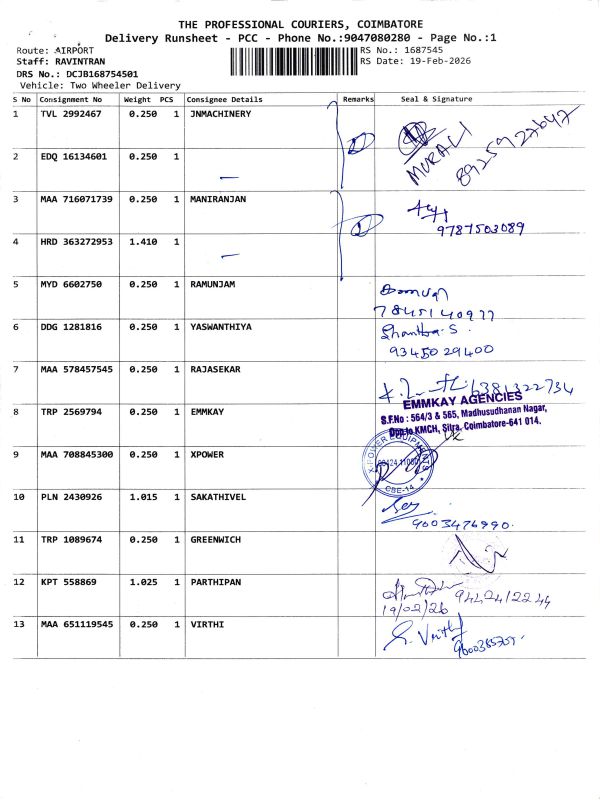 THE PROFESSIONAL COURIERS, COIMBATORE
Delivery Runsheet - PCC - Phone No.:9047080280 - Page No.:1
Route: AIRPORT RS No.: 1687545
Staff: RAVINTRAN RS Date: 19-Feb-2026
DRS No.: DCJB168754501
Vehicle: Two Wheeler Delivery
S No Consignment No Weight PCS Consignee Details Remarks Seal & Signature
1 TVL 2992467 0.250 1 JNMACHINERY
MURALI
8925927647
2 EDQ 16134601 0.250 1
3 MAA 716071739 0.250 1 MANIRANJAN
9787503089
4 HRD 363272953 1.410 1
5 MYD 6602750 0.250 1 RAMUNJAM
7845140977
6 DDG 1281816 0.250 1 YASWANTHIYA
Shantha S.
9345029400
7 MAA 578457545 0.250 1 RAJASEKAR
6381322734
8 TRP 2569794 0.250 1 EMMKAY
EMMKAY AGENCIES
S.F.No : 564/3 & 565, Madhusudhanan Nagar,
Opp.to KMCH, Sitra, Coimbatore-641 014.
9 MAA 708845300 0.250 1 XPOWER
X-POWER EQUIPMENTS
CBE-14
10 PLN 2430926 1.015 1 SAKATHIVEL
9003476990.
11 TRP 1089674 0.250 1 GREENWICH
12 KPT 558869 1.025 1 PARTHIPAN
19/02/26
13 MAA 651119545 0.250 1 VIRTHI
S. Virthi